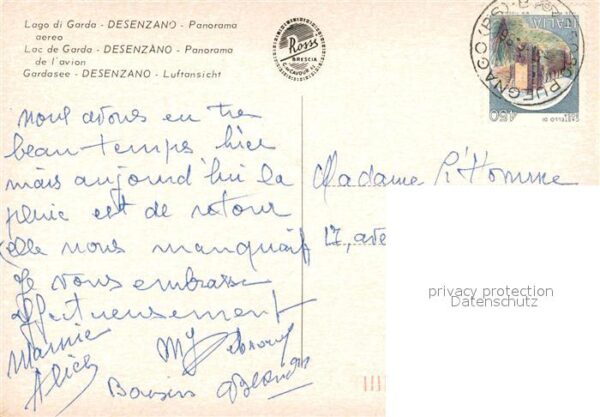 Lago di Garda - DESENZANO - Panorama
aereo
Lac de Garda - DESENZANO - Panorama
de l'avion
Gardasee - DESENZANO - Luftansicht
Ross
BRESCIA
ITALIA
450
PUEGNAGO (BS)
nous avons eu très
beau temps hier
mais aujourd'hui la
pluie est de retour
(elle nous manquait
Je vous embrasse
affectueusement
Mamie
Alice
Baisers
Madame L'Homme
17, ave
privacy protection
Datenschutz